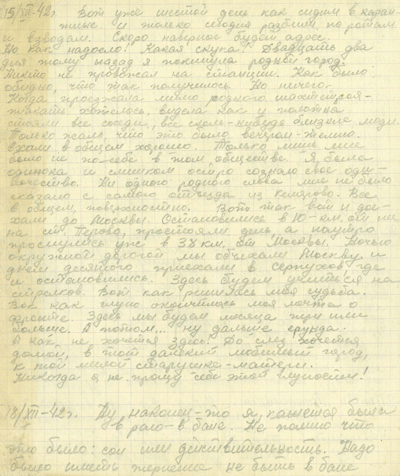 15/VII-42г. Вот уже шестой день как сидим в каран-
тине и только сегодня разбили по ротам
и взводам. Скоро наверное будет адрес.
Но как надоело! Какая скука! Двадцать два
дня тому назад я покинула родной город.
Никто не провожал на станции. Как было
обидно, что так получилось. Но ничего.
Когда проезжала мимо родного
стояли все соседи, все близкие люди.
Только жаль, что это было вечером - темно.
Ехали в общем хорошо. Только мне
было не по-себе в том обществе. Я была
одинока и слишком остро сознавала свое оди-
ночество. Ни одного родного слова мне не было
сказано с самого отъезда из Кизнера. Все
в общем, поверхностно. Вот так и дое-
хали до Москвы. Остановились в 10-км. от нее
на ст. Перово, простояли день, а наутро
проснулись уже в 38 км. от Москвы. Ночью
окружной дорогой мы объехали Москву и
днем десятого приехали в Серпухов где
и остановились. Здесь будем учиться на
Вот как решилась моя судьба.
Вот как глупо окончилась моя мечта о
фронте. Здесь мы будем месяца три или
больше. А потом... ну дальше ерунда.
А как не хочется здесь! До слез хочется
домой, в тот далекий любимый город,
к той милой старушке-матери.
Никогда я не прощу себе этой глупости!
18/VII-42г. Ну наконец-то я, кажется была
в раю - в бане. Не помню что
это было: сон или действительность. Надо
было иметь терпение не бывши в бане